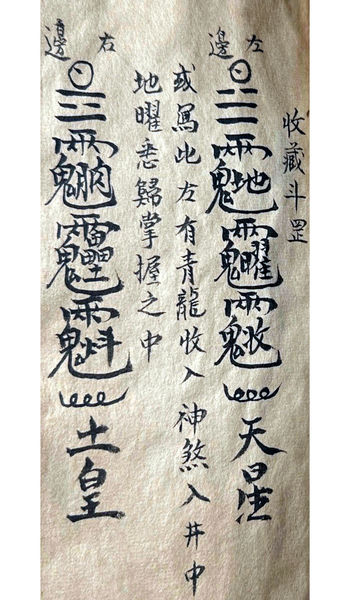 收藏斗罡
左邊
天星
或寫此左有青龍收入神煞入井中
地曜悉歸掌握之中
右邊
土皇